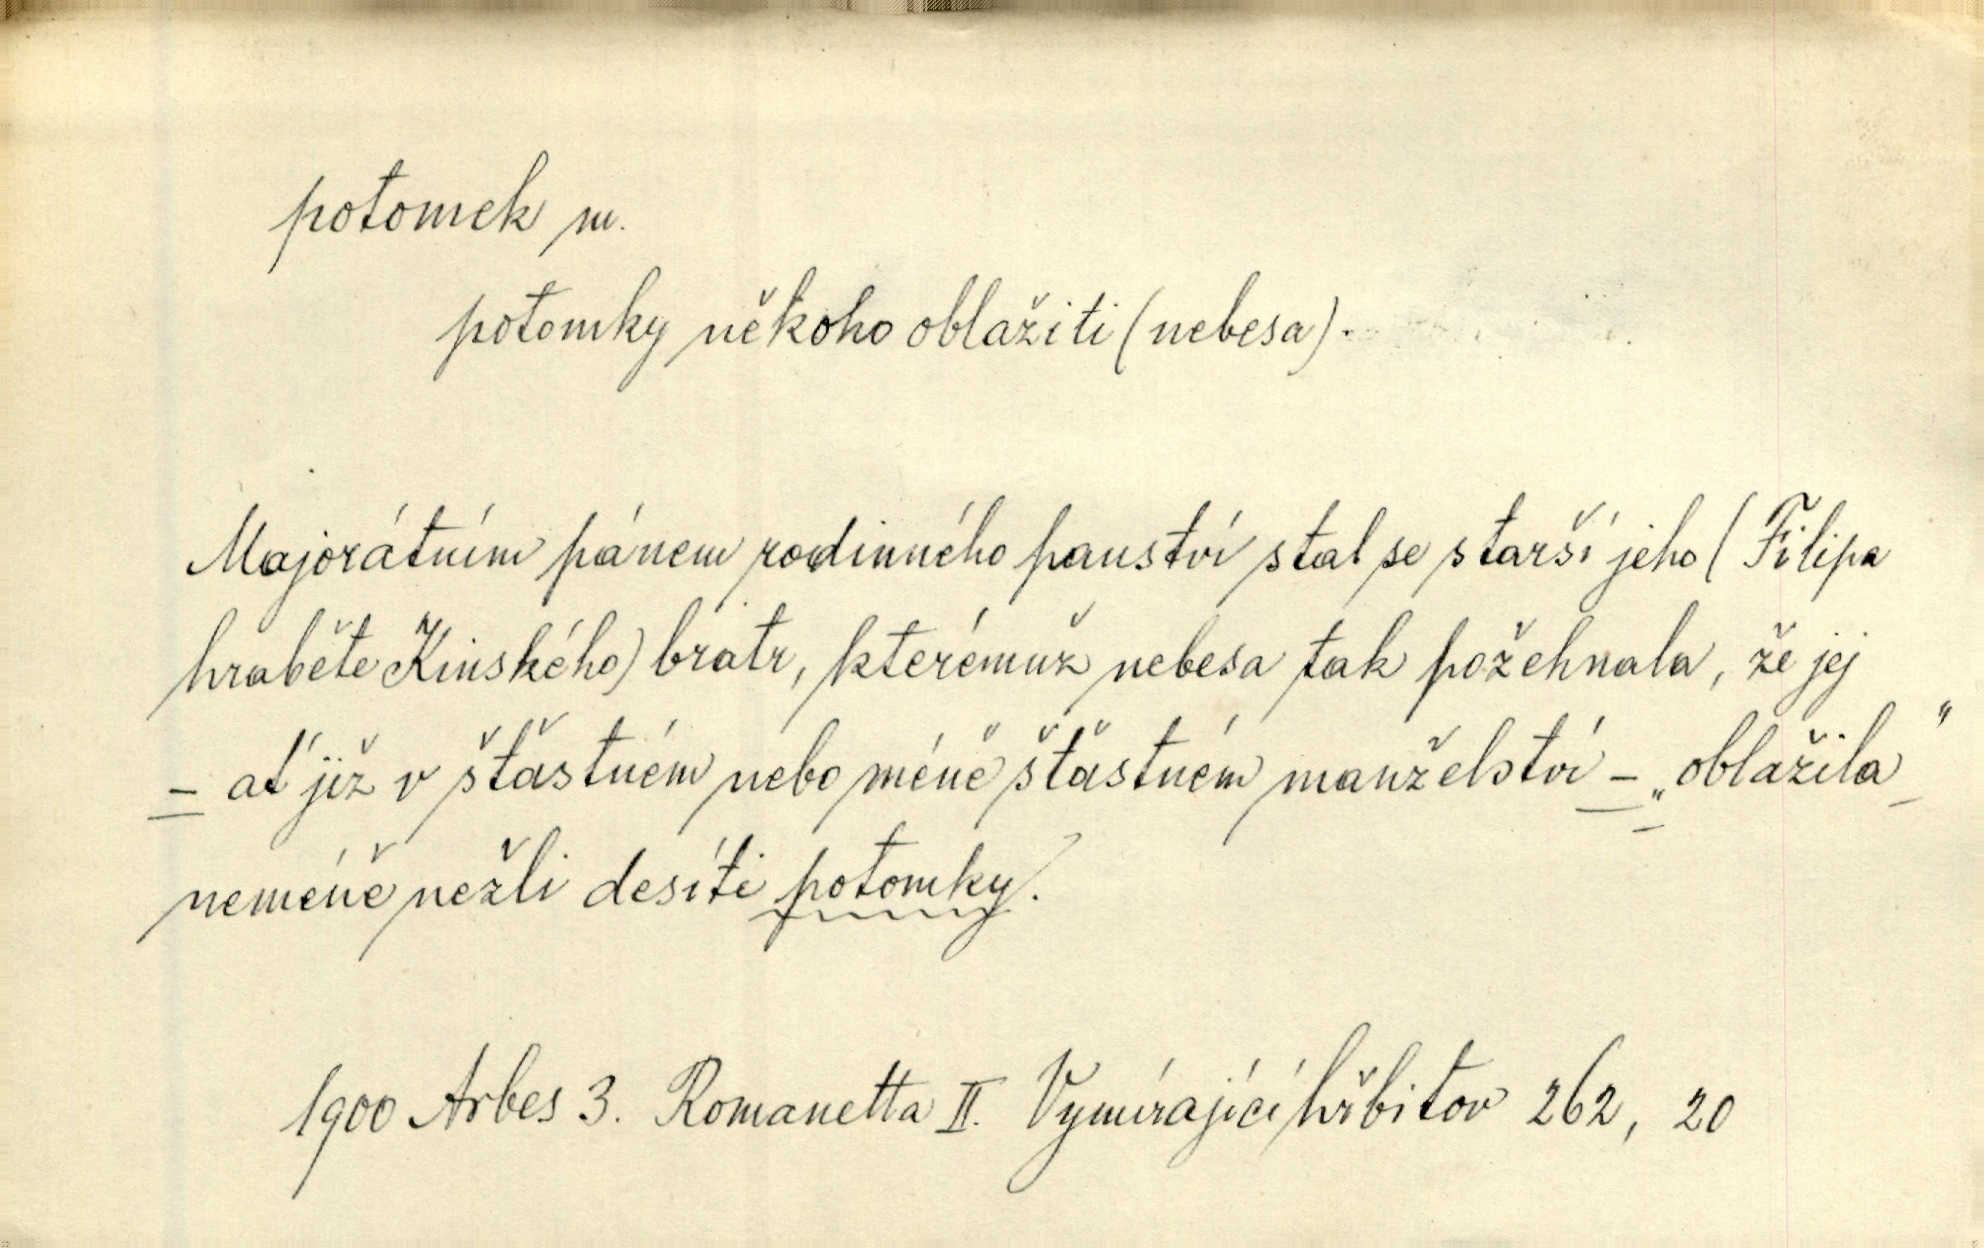 potomek m.
potomky někoho oblažiti (nebesa).
Majorátním pánem rodinného panství stal se starší jeho (Filipa
hraběte Kinského) bratr, kterémuž nebesa tak požehnala, že jej
– ať již v šťastném nebo méně šťastném manželství – „oblažila“
neméně nežli desíti potomky.
1900 Arbes 3. Romanetta II. Vymírající hřbitov 262, 20